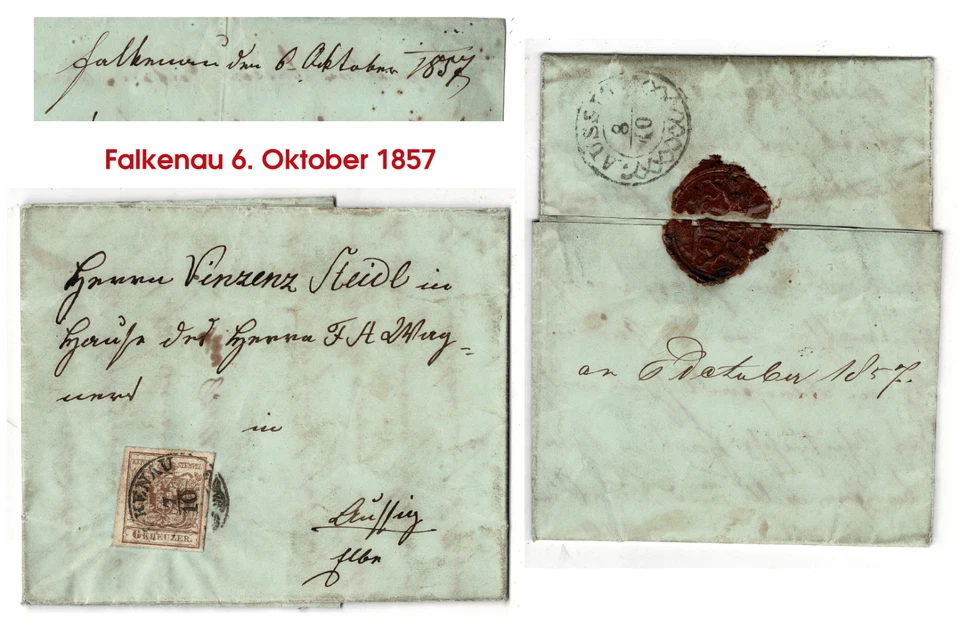 Falkenau den 6. Oktober 1857.
Falkenau 6. Oktober 1857
Herrn Vinzenz Steidl in
Hause des Herrn F A Wag=
ners
in
KENAU
7
10
6 KREUZER.
Aussig
Elbe
AUSSE
8
10
6 October 1857.